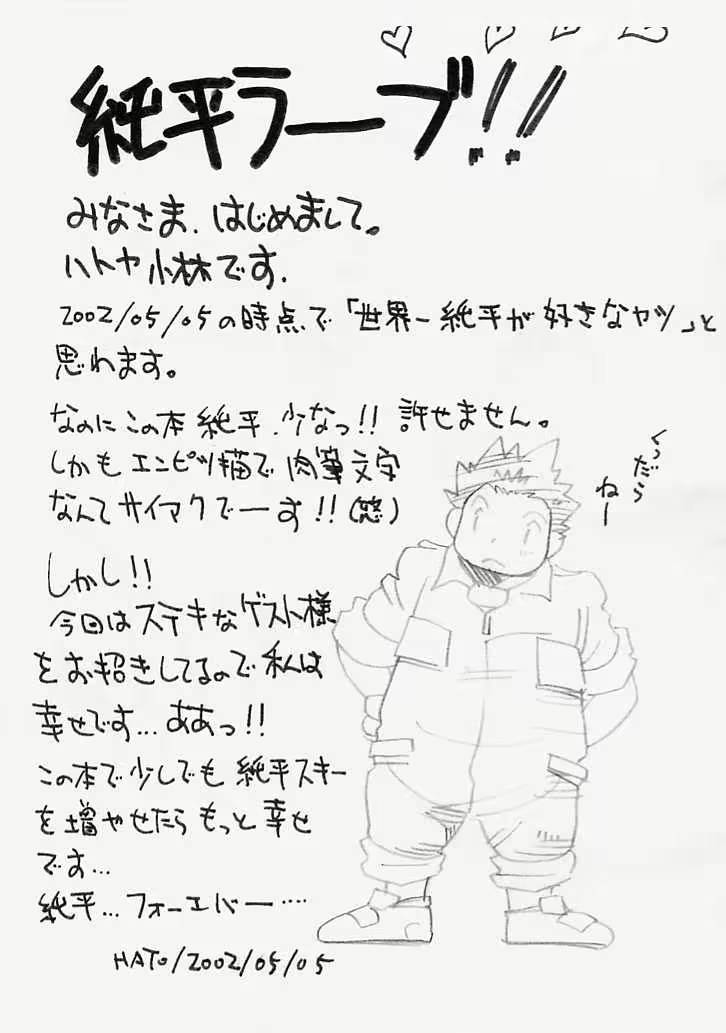 純平ラーブ!!
みなさま、はじめまして。
ハトヤ小林です。
2002/05/05の時点で「世界一純平が好きなヤツ」と
思われます。
なのにこの本純平、少なっ!!許せません。
しかもエンピツ描で肉筆文字
なんてサイアクでーす!!(怒)
くっだら
ねー
しかし!!
今回はステキなゲスト様
をお招きしてるので私は
幸せです…ああっ!!
この本で少しでも純平スキー
を増やせたらもっと幸せ
です…
純平…フォーエバー……
HATO/2002/05/05